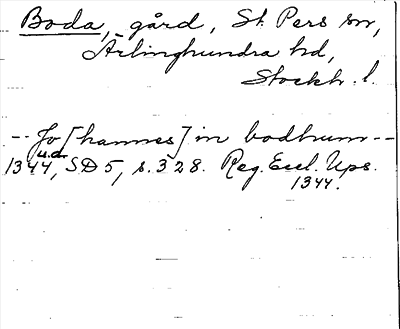 Boda, gård, St. Pers sn,
Ärlinghundra hd,
Stockh. l.
-- Jo [hannes] in bodhum --
u.d.
1344, SD 5, s. 328. Reg. Eccl. Ups.
1344.